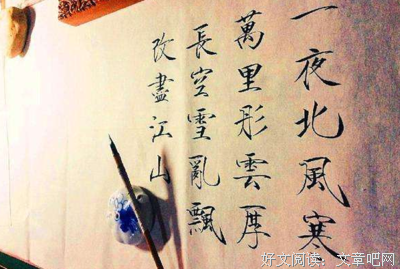 一夜北風寒
萬里彤雲厚
長空雪亂飄
改盡江山
好文阅读：文章吧网